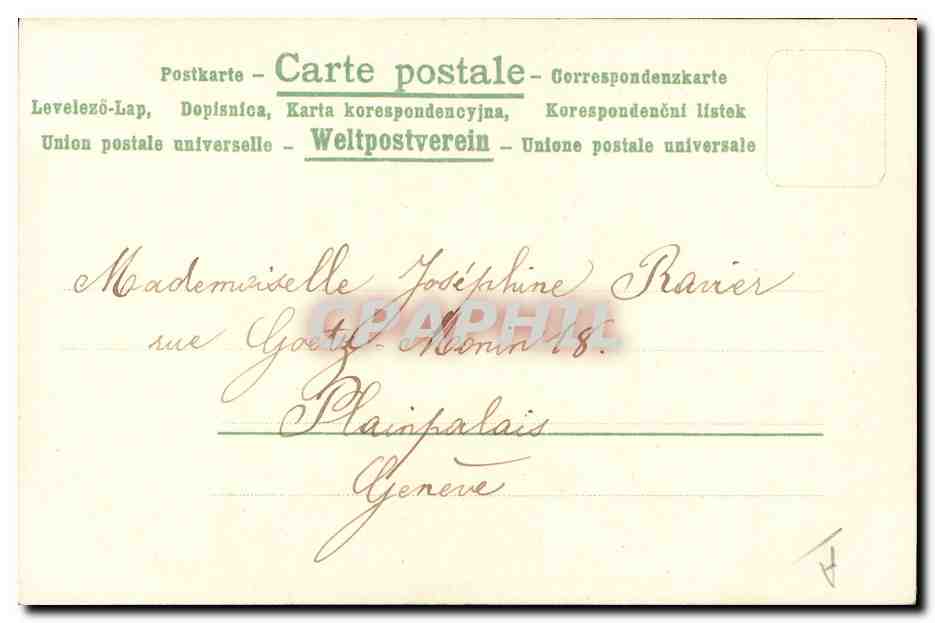 Postkarte – Carte postale – Correspondenzkarte
Levelező-Lap, Dopisnica, Karta korespondencyjna, Korespondenční lístek
Union postale universelle – Weltpostverein – Unione postale universale
Mademoiselle Joséphine Ravier
rue Goetz-Monin 18.
CPAPHIL
Plainpalais
Genève